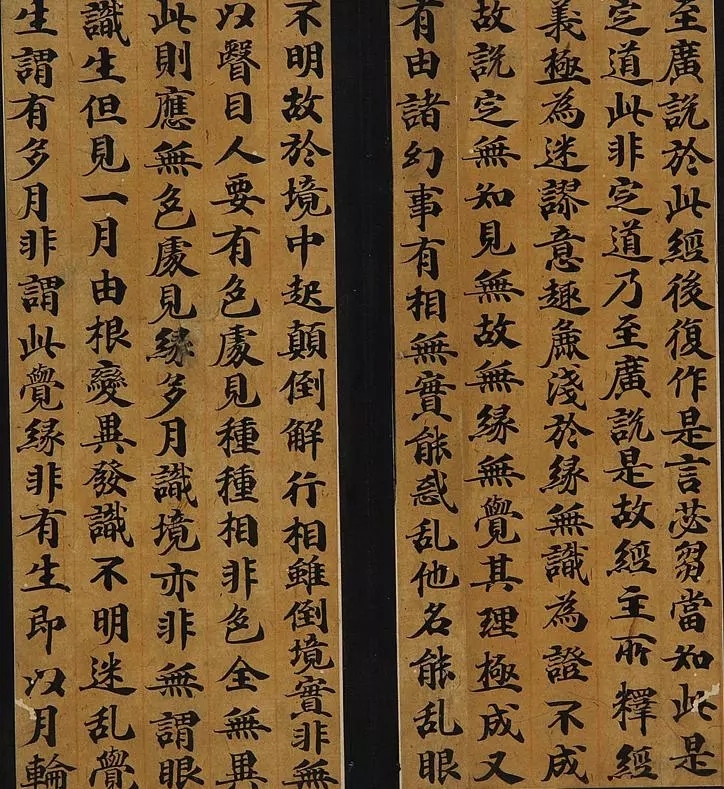 至廣說於此經後復作是言苾芻當知此是
㝎道此非㝎道乃至廣說是故經主所釋經
義極為迷謬意趣麁淺於緣無識為證不成
故說㝎無知見無故無緣無覺其理極成又
有由諸幻事有相無實能惑乱他名能乱眼
不明故於境中起顛倒解行相雖倒境實非無
以瞖目人要有色處見種種相非色全無異
此則應無色處見緣多月識境亦非無謂眼
識生但見一月由根變異發識不明迷乱覺
生謂有多月非謂此覺緣非有生即以月輪